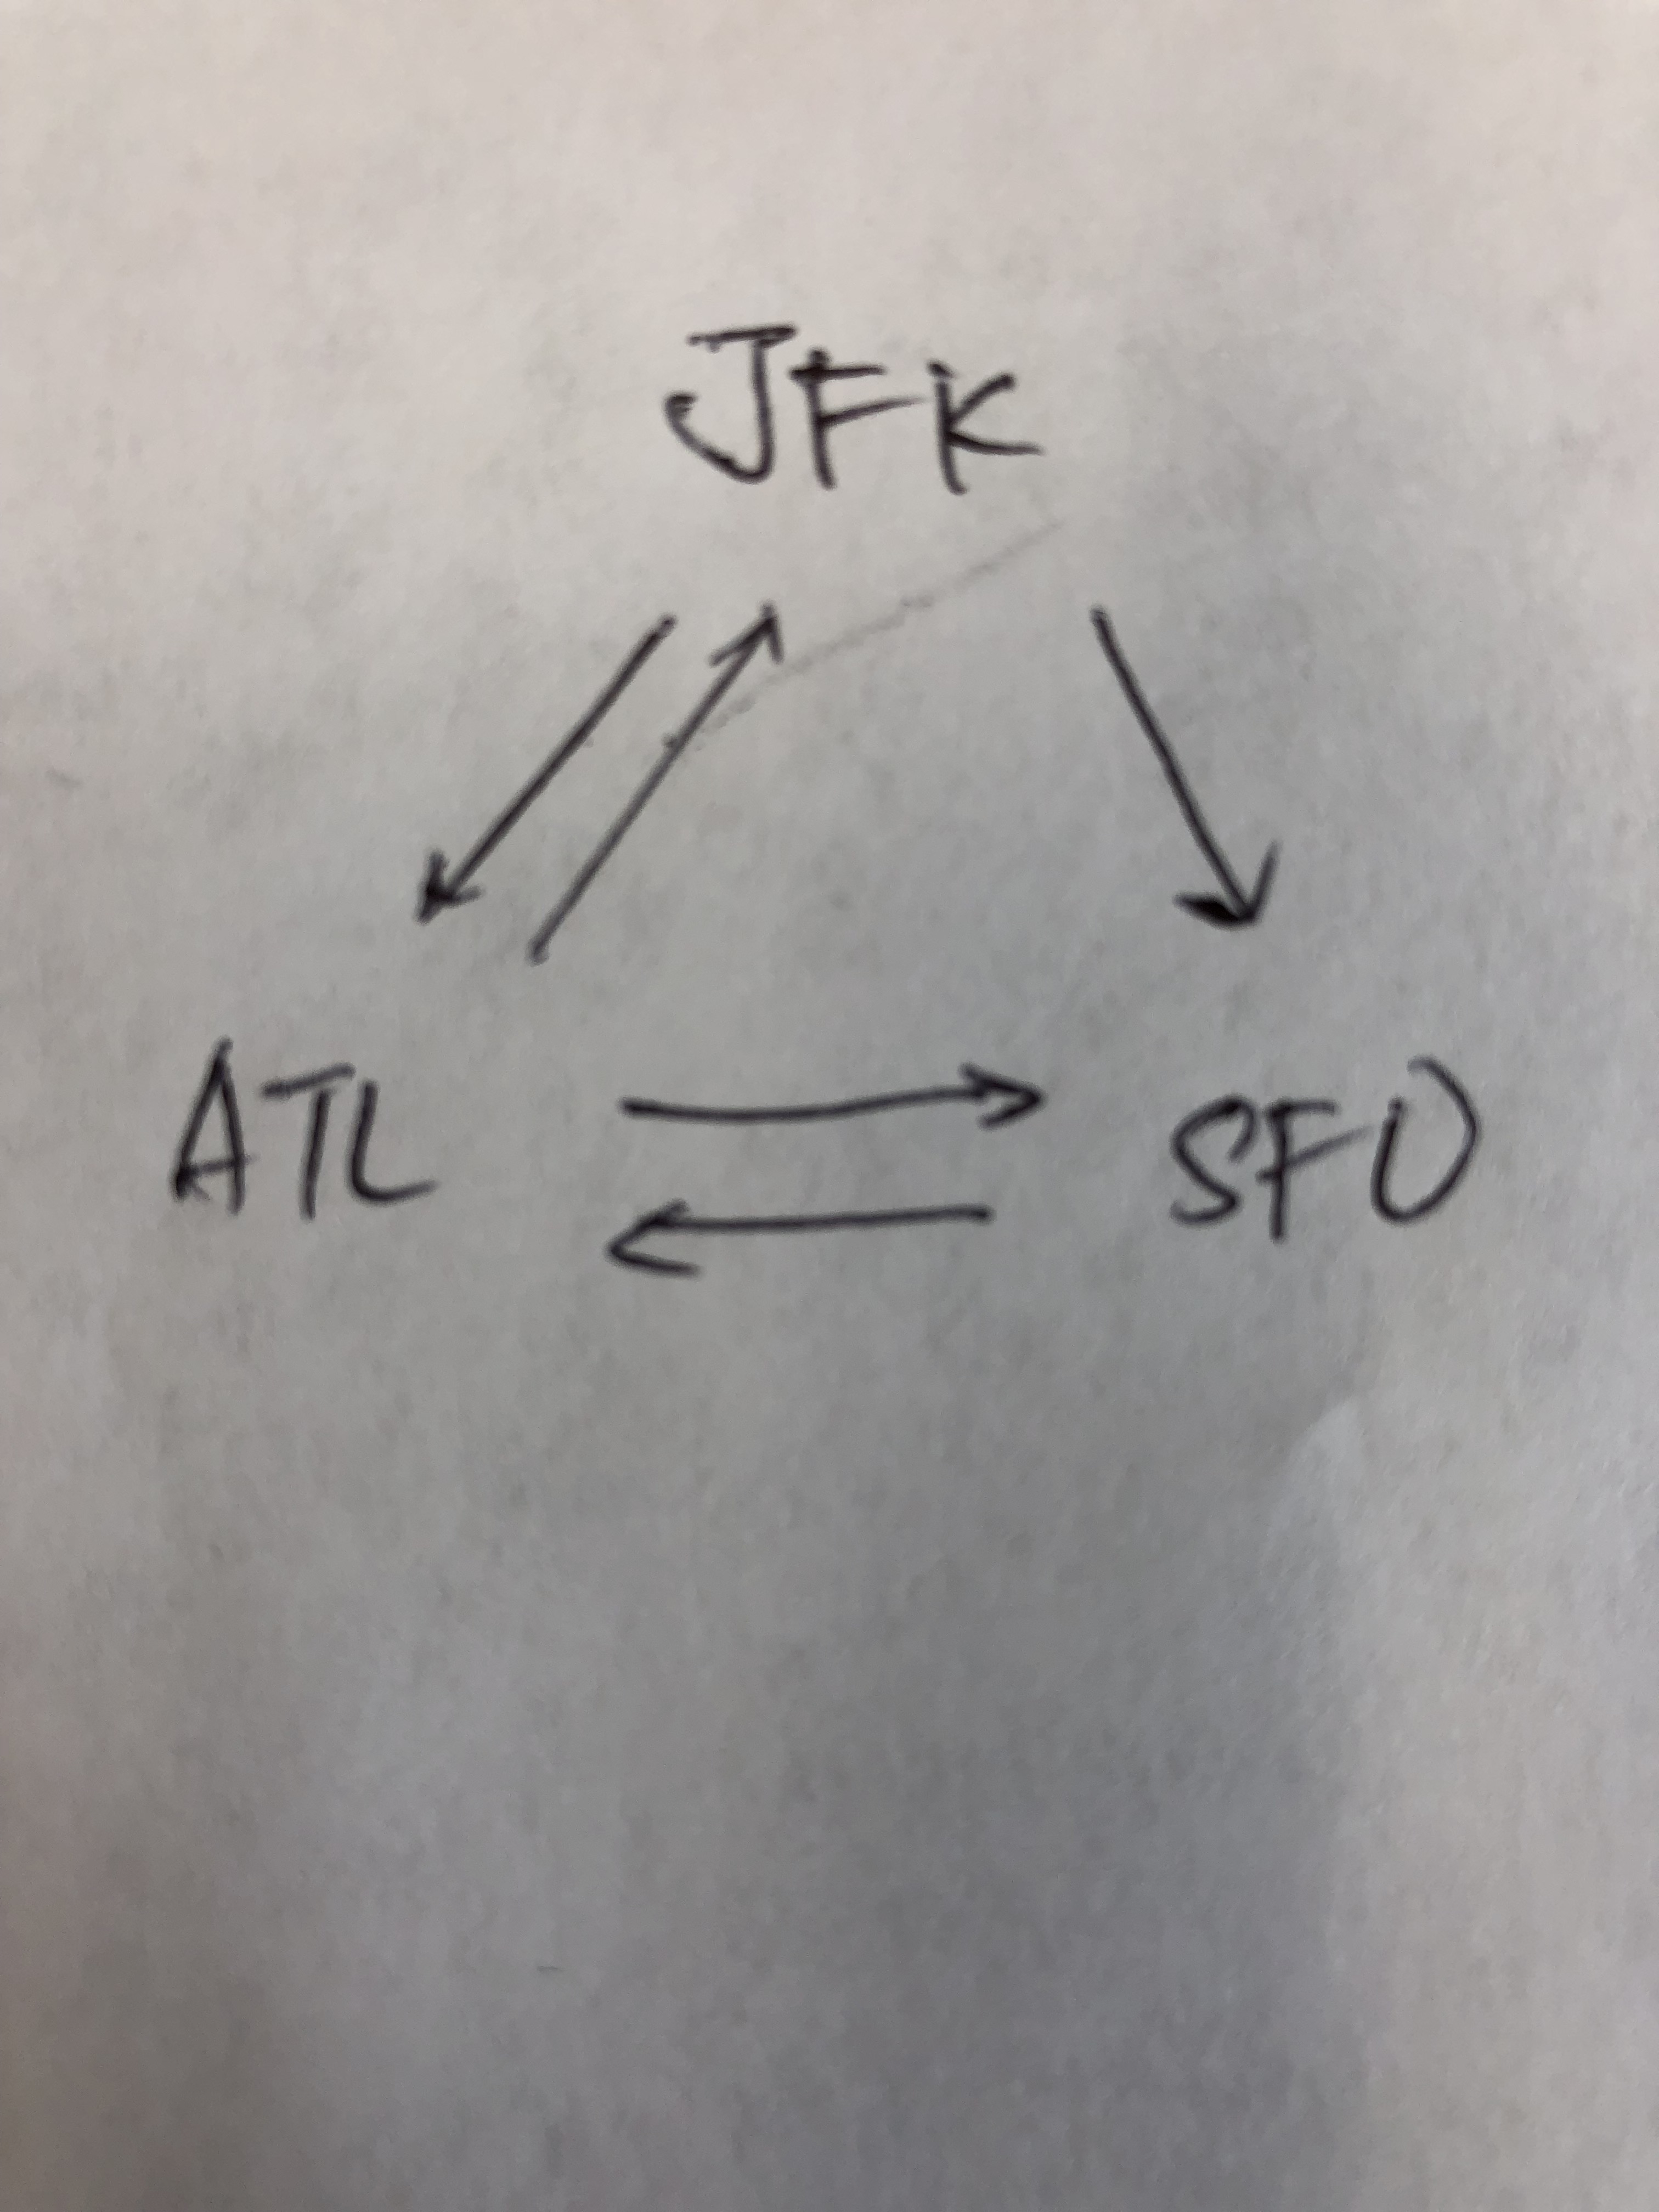 JFK
ATL SFO